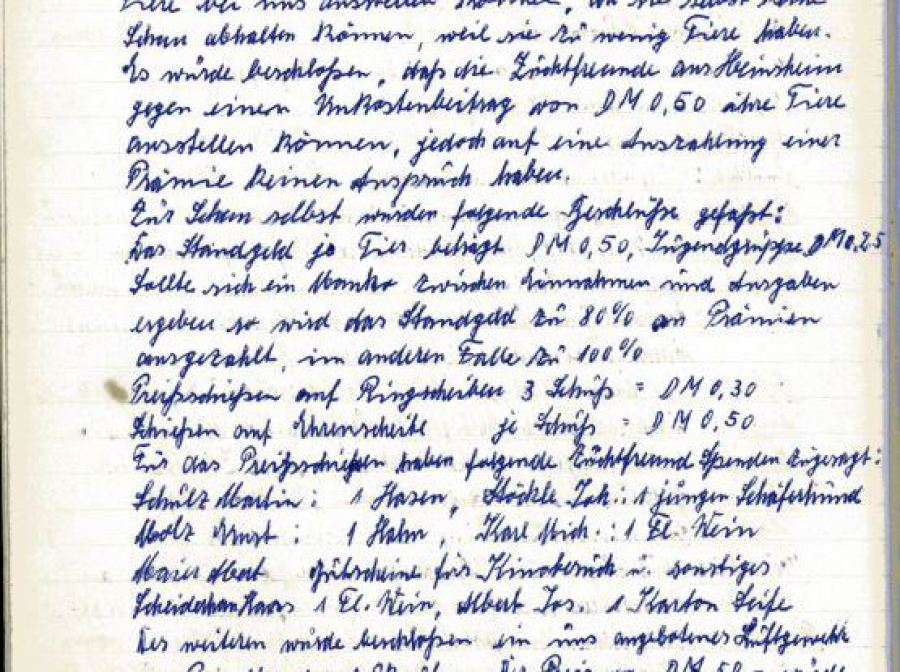 Tiere bei uns ausstellen möchten, da sie selbst keine
Schau abhalten können, weil sie zu wenig Tiere haben.
Es würde beschloßen, daß die Züchtfreunde aus Heinsheim
gegen einen Unkostenbeitrag von DM 0,50 ihre Tiere
ausstellen können, jedoch auf eine Auszahlung einer
Prämie keinen Anspruch haben.
Zur Schau selbst wurden folgende Beschlüße gefaßt:
Das Standgeld je Tier beträgt DM 0,50, Jugendgruppe DM 0,25
Sollte sich ein Manko zwischen Einnahmen und Ausgaben
ergeben so wird das Standgeld zu 80% an Prämien
ausgezahlt, im anderen Falle zu 100%
Preißschießen auf Ringscheiben 3 Schüß = DM 0,30
Schießen auf Ehrenscheibe je Schüß = DM 0,50
Für das Preißschießen haben folgende Züchtfreund Spenden zugesagt:
Schulz Martin : 1 Hasen, Stöckle Joh.: 1 jungen Schäferhund
Molz Ernst : 1 Hahn, Karl Mich. : 1 Fl. Wein
Maier Albert Gütscheine für Kinobesuch ü. sonstiges
Hans 1 Fl. Wein, Albert Jos. 1 Karton Seife
Des weiteren würde beschloßen ein uns angebotenes Lüftgewehr
DM 50